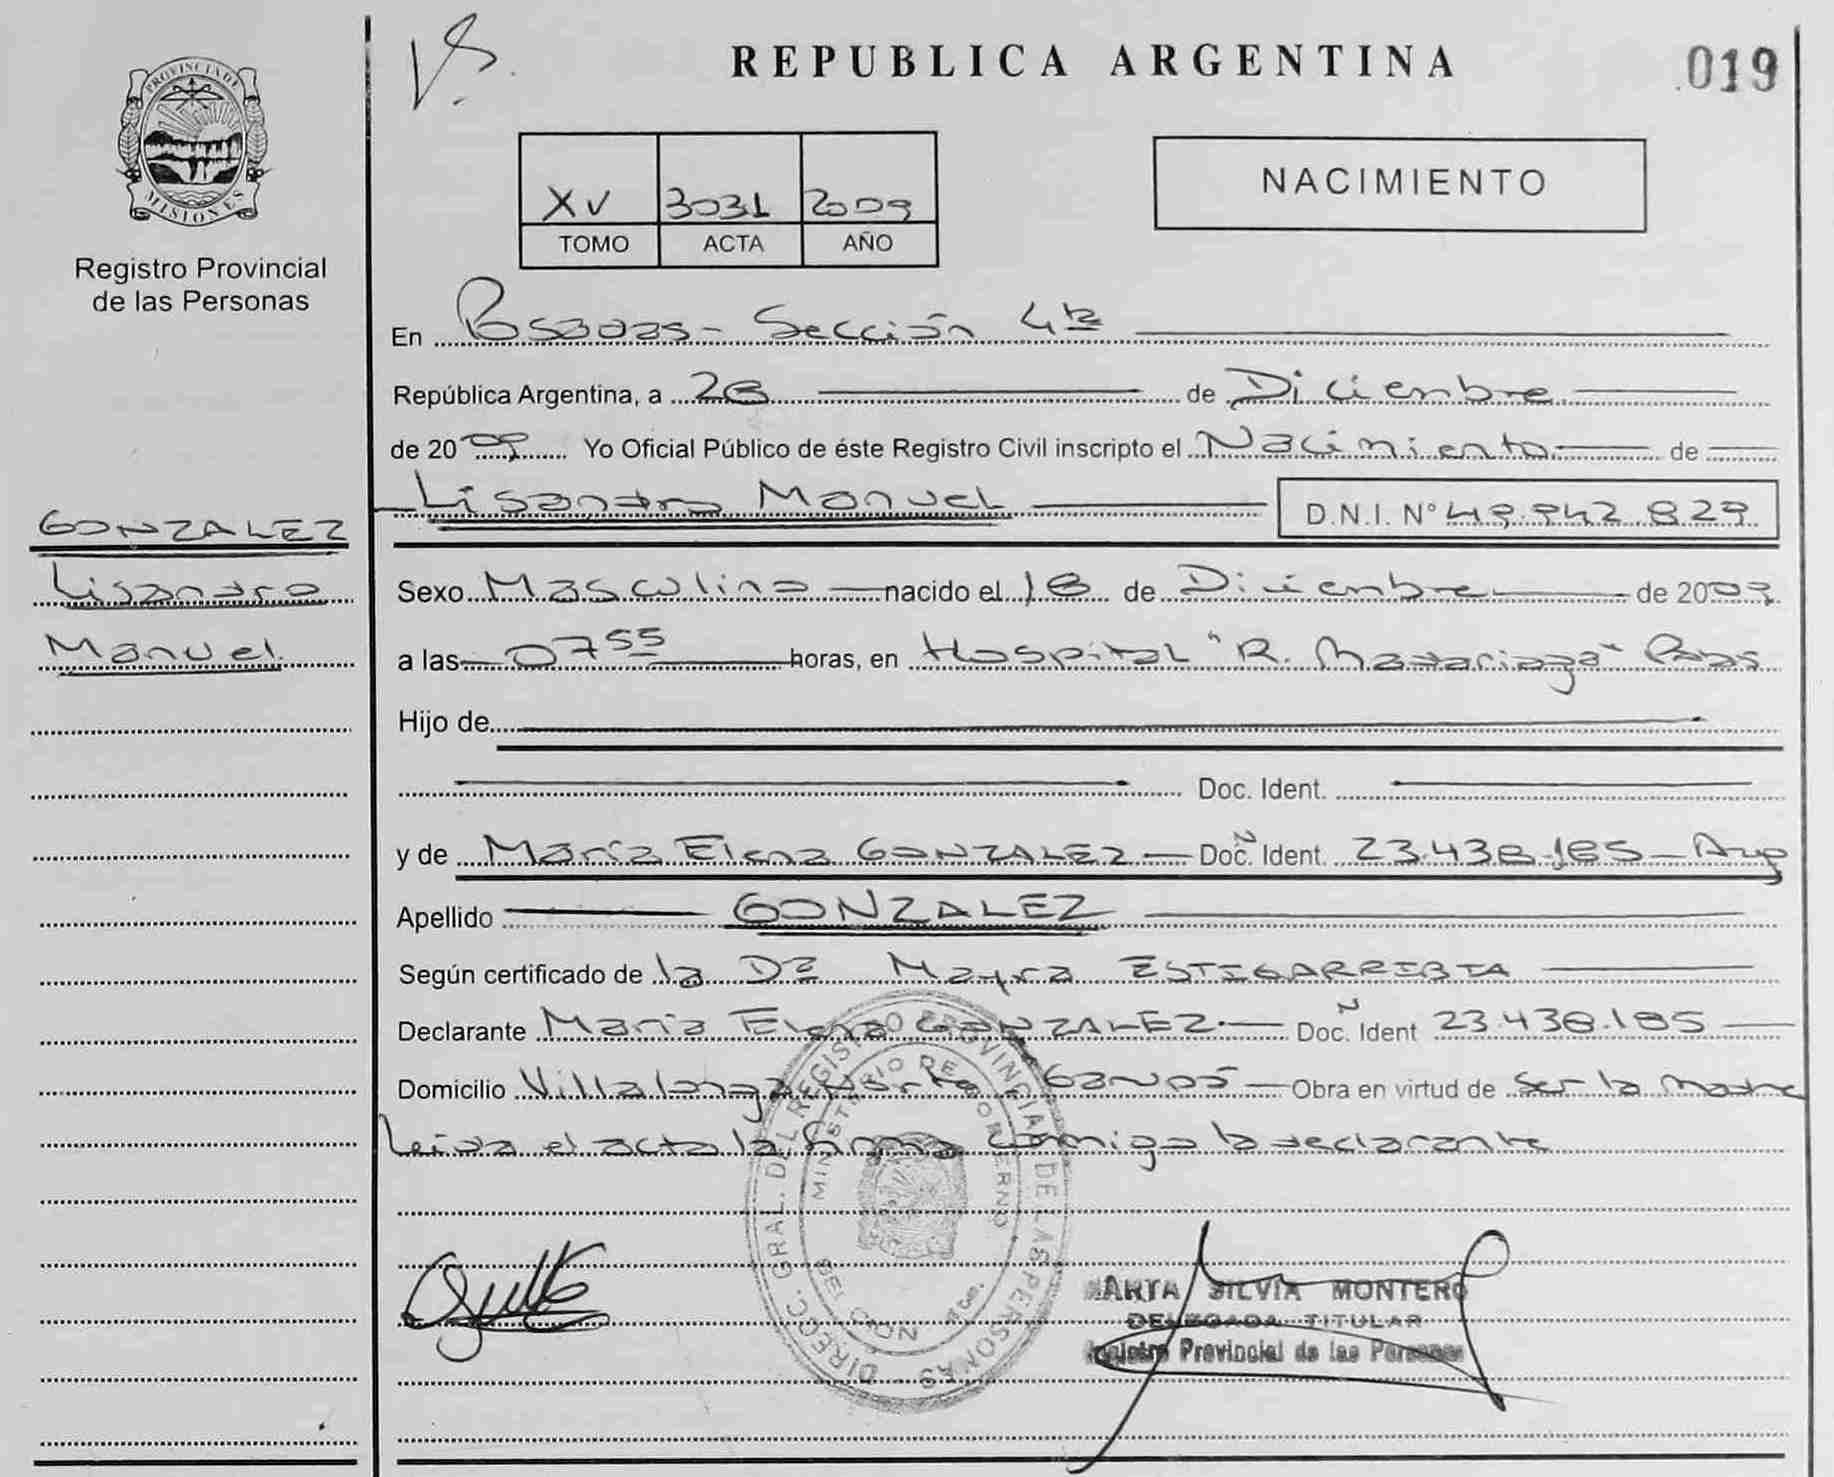 REPUBLICA ARGENTINA
.019
PROVINCIA DE
MISIONES
Registro Provincial
de las Personas
NACIMIENTO
XV 3031 2009
TOMO ACTA AÑO
En Posadas - Sección 4ta
República Argentina, a 28 de Diciembre
de 2009 Yo Oficial Público de éste Registro Civil inscripto el Nacimiento de
Lisandro Manuel D.N.I. N° 49.942.829
GONZALEZ
Lisandro
Manuel.
Sexo Masculino nacido el 18 de Diciembre de 2009
a las 07 55 horas, en Hospital "R. Madariaga" Pdas
Hijo de
Doc. Ident.
y de María Elena GONZALEZ Doc. N Ident. 23.438.185 - Arg
Apellido GONZALEZ
Según certificado de la Dra Mayra ESTIGARRIBIA
Declarante María Elena GONZALEZ Doc. N Ident 23.438.185
Domicilio Villalonga Norte Garupá Obra en virtud de ser la madre
Leida el acta la firma conmigo la declarante
DIRECC. GRAL. DEL REGISTRO PROVINCIAL DE LAS PERSONAS
MINISTERIO DE GOBIERNO
MARTA SILVIA MONTERO
DELEGADA TITULAR
Registro Provincial de las Personas